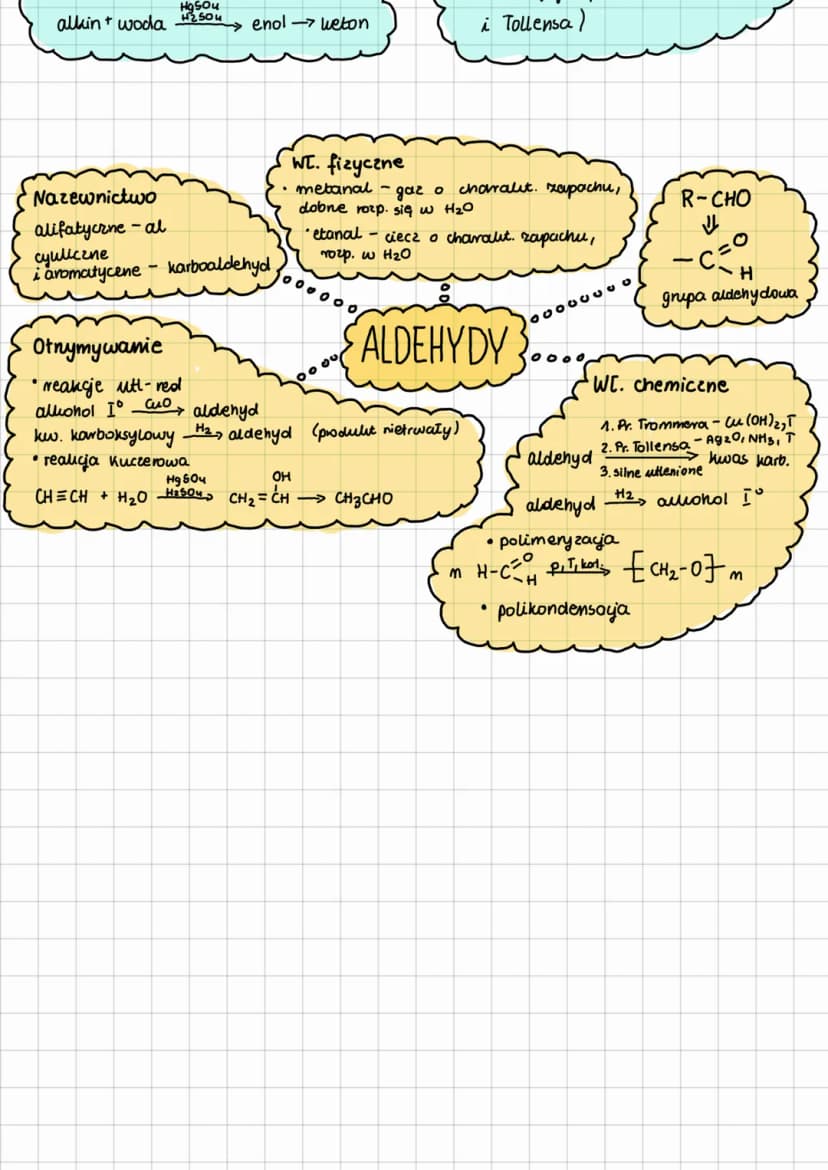 HgSO4
H2SO4
alkin + woda → enol → keton
i Tollensa)
Wł. fizyczne
• metanal – gaz o charakt. zapachu,
dobrze rozp. się w H2O
• etanal – ciecz o charakt. zapachu,
rozp. w H2O
Nazewnictwo
alifatyczne – al
cykliczne
i aromatyczne – karboaldehyd
R–CHO
⇓
–C=O
H
grupa aldehydowa
ALDEHYDY
Otrzymywanie
• reakcje utl-red
alkohol I° CuO→ aldehyd
kw. karboksylowy H2→ aldehyd (produkt nietrwały)
• reakcja Kuczerowa
HgSO4 OH
CH≡CH + H2O H2SO4→ CH2=CH → CH3CHO
Wł. chemiczne
1. Pr. Trommera – Cu(OH)2, T
2. Pr. Tollensa – Ag2O, NH3, T
aldehyd → kwas karb.
3. silne utlenione
aldehyd H2→ alkohol I°
• polimeryzacja
n H–C=O H p,T,kat.→ [CH2–O]n
• polikondensacja